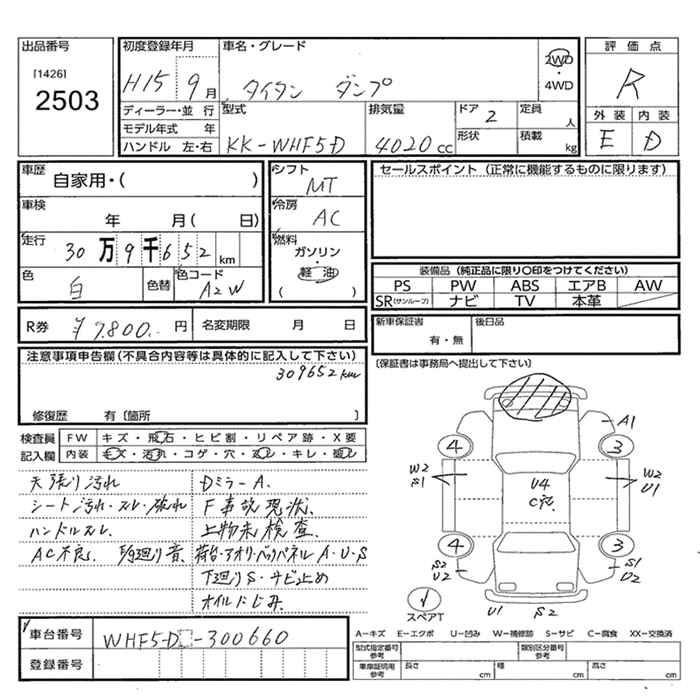 出品番号
[1426]
2503
初度登録年月
H15 9月
車名・グレード
タイタン ダンプ
2WD
・
4WD
評価点
R
外装 内装
E D
ディーラー・並 行
モデル年式 年
ハンドル 左・右
型式
KK-WHF5D
排気量
4020cc
ドア 2
形状
定員
人
積載
kg
車歴
自家用・( )
車検
年 月( 日)
走行
30万9千652km
色
白
色替
色コード
A2W
シフト
MT
冷房
AC
燃料
ガソリン・
軽 油
( )
セールスポイント (正常に機能するものに限ります)
装備品 (純正品に限り〇印をつけてください)
PS PW ABS エアB AW
SR(サンルーフ) ナビ TV 本革
R券 ¥7,800.- 円 名変期限 月 日
新車保証書
有・無
後日品
(保証書は事務局へ提出して下さい)
注意事項申告欄(不具合内容等は具体的に記入して下さい)
309652km
修復歴 有〔箇所 〕
検査員
記入欄
FW キズ・飛石・ヒビ割・リペア跡・X要
内装 キズ・汚れ・コゲ・穴・スレ・キレ・
天張り汚れ
シート汚れ・スレ・破れ
ハンドルスレ
AC不良
廻り音
DミラーA.
F事故現状.
上物未検査.
荷台・アオリ・バックパネルA・U・S
下廻りS・サビ止め
オイルにじみ.
A1
4 3
W2
S1
U4
C穴
W2
U1
4 3
S2
U2
S1
U2
U1 S2
スペアT
車台番号
WHF5-D□-300660
登録番号
A-キズ E-エクボ U-凹み W-補修跡 S-サビ C-腐食 XX-交換済
型式指定番号
参考
類別区分番号
参考
車庫証明用
参考
長さ cm 幅 cm 高さ cm